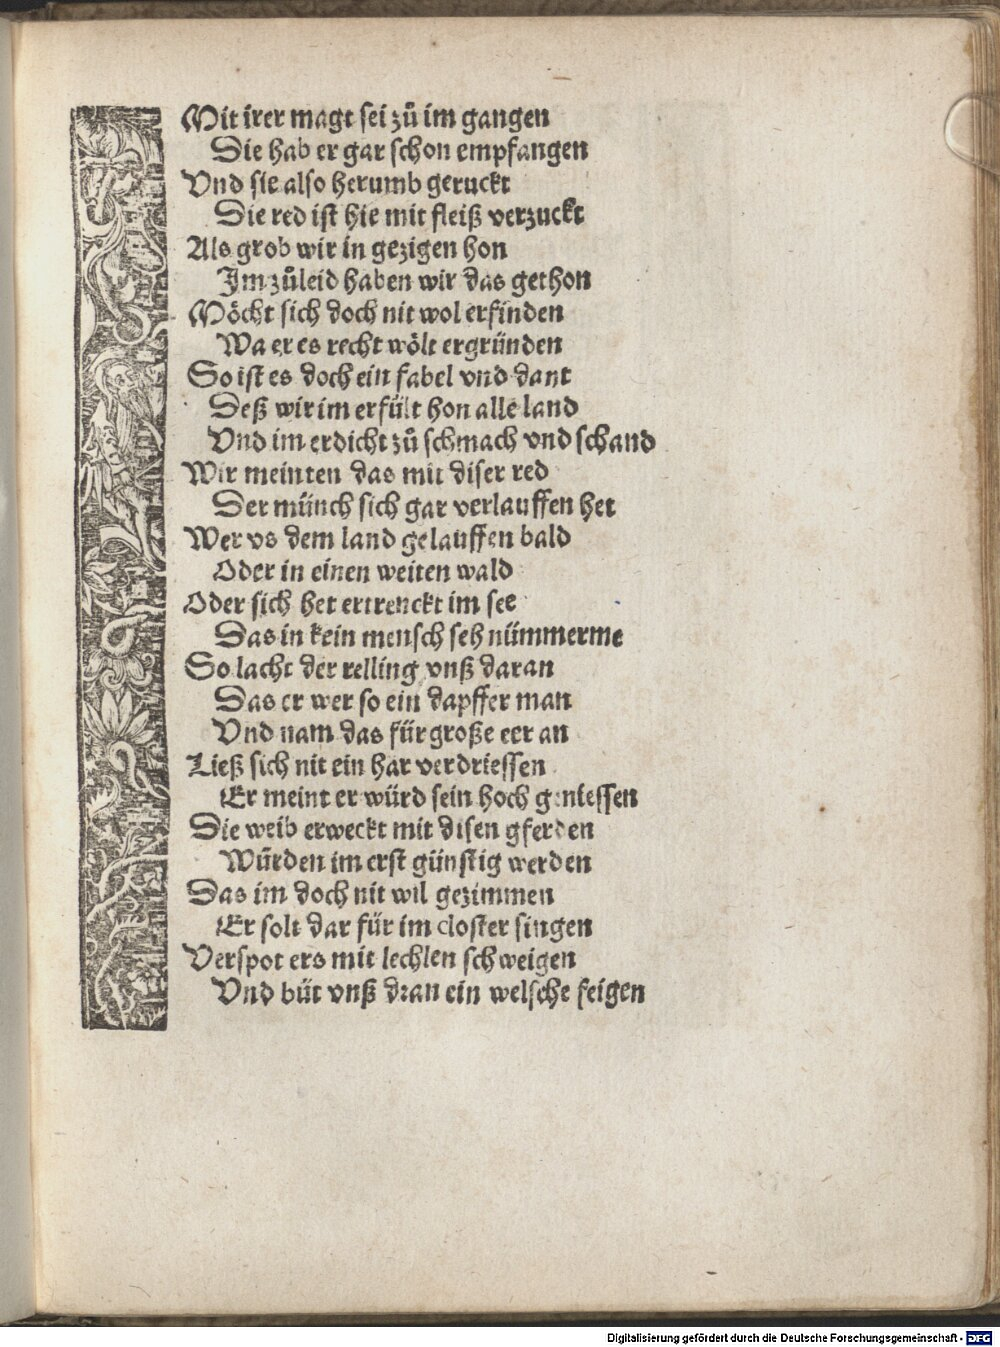 Mit irer magt sei zů im gangen
Die hab er gar schon empfangen
Vnd sie also herumb geruckt
Die red ist hie mit fleiß verzuckt
Als grob wir in gezigen hon
Im zůleid haben wir das gethon
Möcht sich doch nit wol erfinden
Wa er es recht wölt ergründen
So ist es doch ein fabel vnd dant
Deß wir im erfült hon alle land
Vnd im erdicht zů schmach vnd schand
Wir meinten das mit diser red
Der münch sich gar verlauffen het
Wer vs dem land gelauffen bald
Oder in einen weiten wald
Oder sich het ertrenckt im see
Das in kein mensch seh nümmerme
So lacht der relling vnß daran
Das er wer so ein dapffer man
Vnd nam das für große eer an
Ließ sich nit ein har verdriessen
Er meint er würd sein hoch geniessen
Die weib erweckt mit disen gferden
Würden im erst günstig werden
Das im doch nit wil gezimmen
Er solt dar für im closter singen
Verspot ers mit lechlen schweigen
Vnd büt vnß dran ein welsche feigen
Digitalisierung gefördert durch die Deutsche Forschungsgemeinschaft - DFG